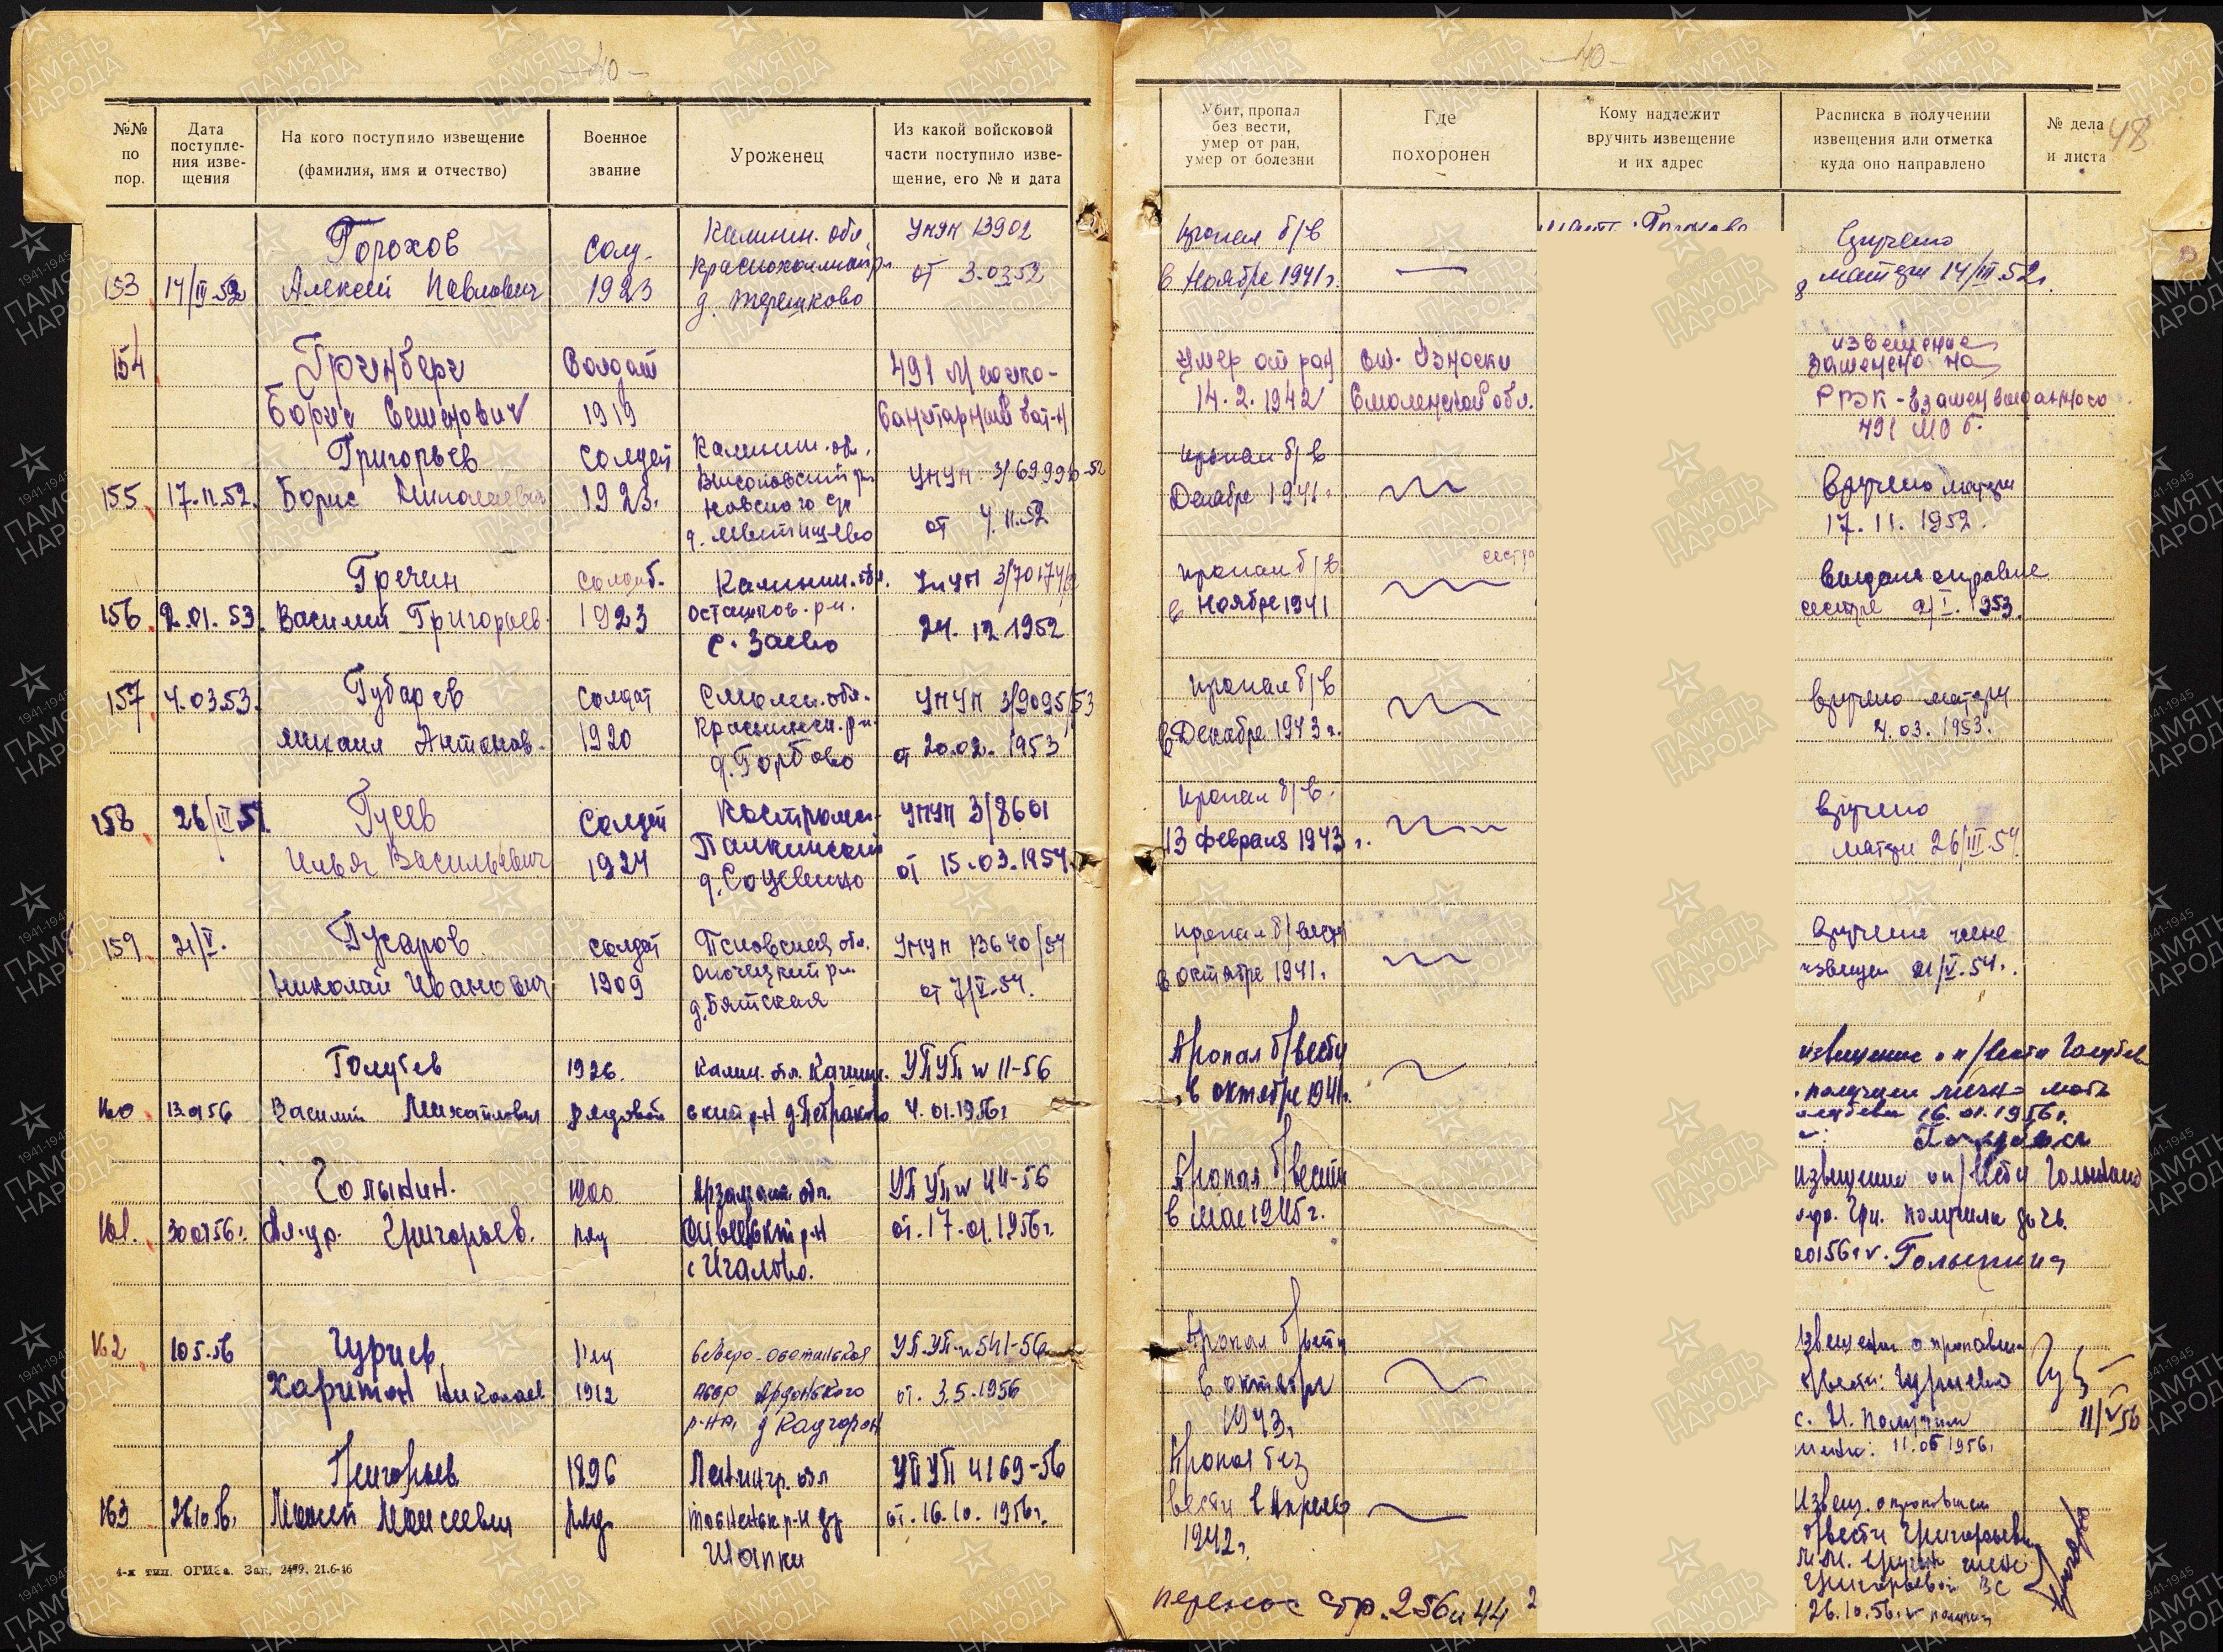 - 40 -
№№ по пор.
Дата поступления извещения
На кого поступило извещение (фамилия, имя и отчество)
Военное звание
Уроженец
Из какой войсковой части поступило извещение, его № и дата
Горохов Солд. Калинин. обл. УПУП 13902
153 14/III 52 Алексей Павлович 1923 Краснохолмский р-н от 3.03.52
д. Терешково
154 Гринберг Солдат 491 Медико-
Борис Семенович 1919 Санитарный бат-н
Григорьев Солдат Калинин. обл.
155 17.11.52. Борис Николаевич 1923. УПУП 3/69996-52
от 4.11.52
Гречин солдат. Калинин. обл. УПУП 3/70174/52
156 2.01.53. Василий Григорьев. 1923 Осташков. р-н. 24.12.1952
с. Заево
157 4.03.53. Губарев Солдат Смолен. обл. УПУП 3/9095/53
Михаил Антонов. 1920 Краснинск. р-н. от 20.02.1953
д. Горбово
158 26/III 54 Гусев Солдат Костромск. УПУП 3/8601
Илья Васильевич 1924 Палкинский от 15.03.1954
159 21/V. Гусаров Солдат Псковская обл. УПУП 13640/54
Николай Иванович 1909 Опочецкий р-н. от 7/V-54.
д. Бятская
Голубев 1926. Калин. обл. Кашин- УПУП № 11-56
160 13.01.56 Василий Михайлович рядовой ский р-н д. Петраково 4.01.1956г
Голынин. 1900 Арзамаск. обл. УПУП № 44-56
161. 30.01.56г. Ал-др. Григорьев. ряд р-н от. 17.01.1956г.
с Ичалово.
162 10.5.56 Гуриев Ряд Северо-Осетинская УПУП-№ 541-56
Харитон Николаев 1912 АССР Ардонского от. 3.5.1956
р-на, д Кадгорон
Григорьев 1896 Ленингр. обл УПУП 4169-56
163 26.10.56. Моисей Моисеевич Ряд. Тосненск р-н д. от. 16.10.1956г.
Шапки
4-я тип. ОГИЗа. Зак. 2479. 21.6-46
- 40 -
Убит, пропал без вести, умер от ран, умер от болезни
Где похоронен
Кому надлежит вручить извещение и их адрес
Расписка в получении извещения или отметка куда оно направлено
№ дела и листа
48
Пропал б/в Вручено
в Ноябре 1941г. — матери 14/III 52г.
извещение
Умер от ран ст. Износки заменено на
14.2.1942 Смоленской обл. РГЭК - взамен выданного
491 МСб.
Пропал б/в Вручено матери
Декабре 1941г. 17.11.1952.
сестра
пропал б/в Выдана справка
в Ноябре 1941 сестре 2/I.1953.
пропал б/в Вручено матери
в Декабре 1943г. 4.03.1953.
Пропал б/в. Вручено
13 февраля 1943г. матери 26/III-54.
пропал б/вести Вручена жене
в октябре 1941г. извещен 21/V.54г.
Пропал б/вести извещение о п/вести Голубев
в октябре 1941г. получил лично мать
16.01.1956г.
Пропал б/вести Извещение о п/вести Голынино
в мае 1945г. Гри. получила дочь.
Голынина
Пропал б/вести Извещение о пропавшем
в октябре б/вести: Гуриево
1943г. с. Н. получил
11.05.1956г. 11/V 56
Пропал без Извещ. о пропавшем
вести в Апреле б/вести Григорьеву
1942г. М.М. вручен жене
Григорьевой ВС
26.10.56.г получил
перенос стр. 256 и 44